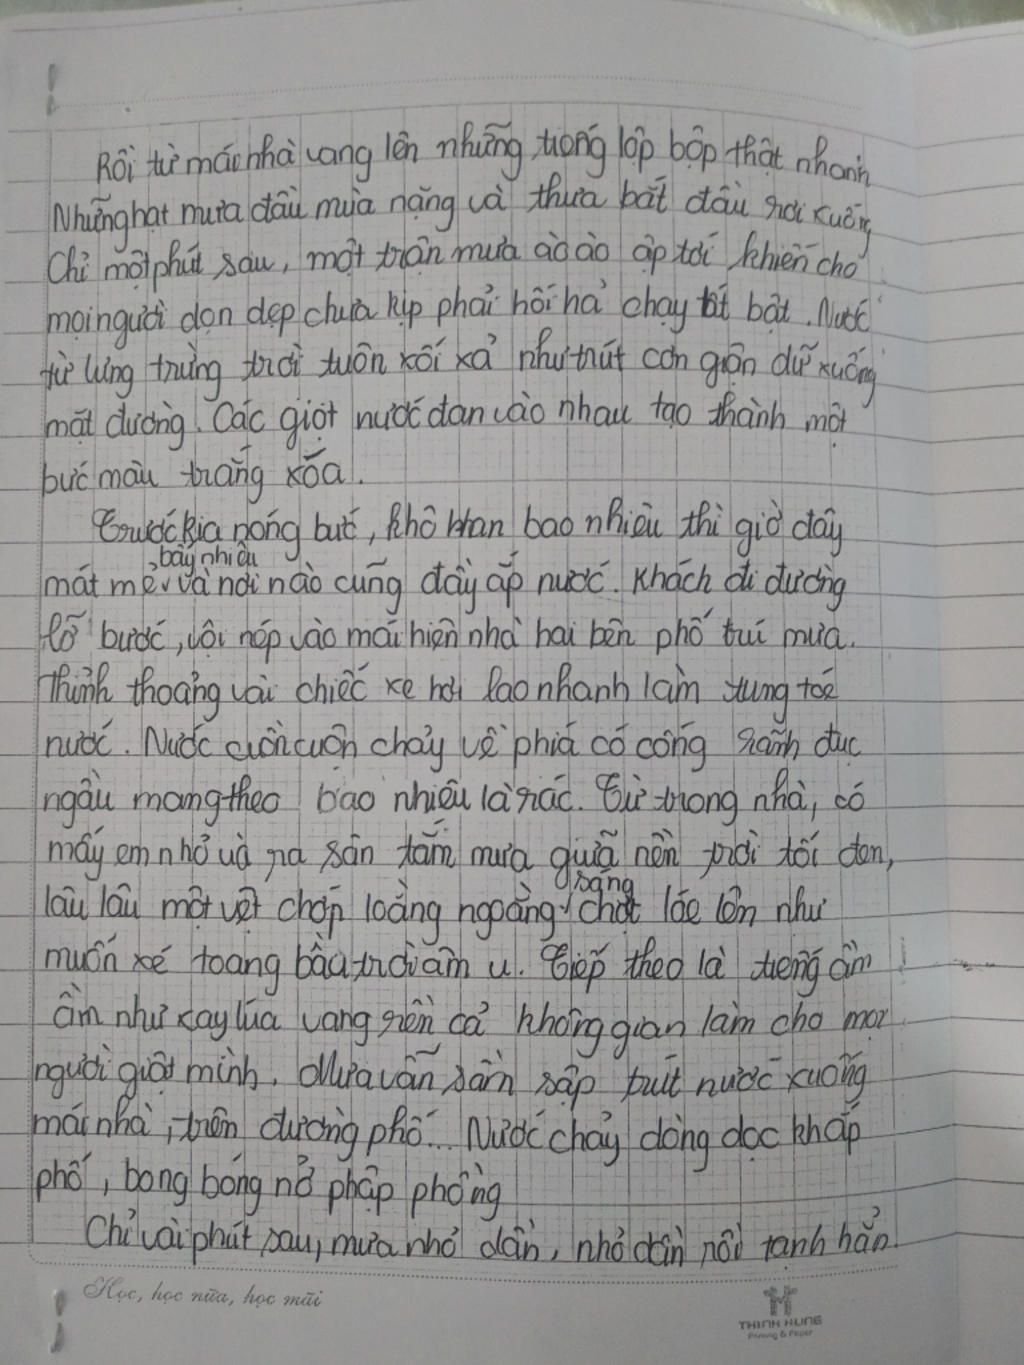 Rồi từ mái nhà vang lên những tiếng lộp bộp thật nhanh
Những hạt mưa đầu mùa nặng và thưa bắt đầu rơi xuống
Chỉ một phút sau, một trận mưa ào ào ập tới khiến cho
mọi người dọn dẹp chưa kịp phải hối hả chạy tất bật. Nước
từ lưng trừng trời tuôn xối xả như trút cơn giận dữ xuống
mặt đường. Các giọt nước đan vào nhau tạo thành một
bức màu trắng xóa.
Trước kia nóng bức, khô khan bao nhiêu thì giờ đây
bấy nhiêu
mát mẻ và nơi nào cũng đầy ắp nước. Khách đi đường
lỡ bước, vội nép vào mái hiên nhà hai bên phố trú mưa.
Thỉnh thoảng vài chiếc xe hơi lao nhanh làm tung toé
nước. Nước cuồn cuộn chảy về phía có cống rãnh đục
ngầu mang theo bao nhiêu là rác. Từ trong nhà, có
mấy em nhỏ ùa ra sân tắm mưa giữa nền trời tối đen,
sáng
lâu lâu một vệt chớp loằng ngoằng chợt lóe lên như
muốn xé toang bầu trời âm u. Tiếp theo là tiếng ầm
ầm như xay lúa vang rền cả không gian làm cho mọi
người giật mình. Mưa vẫn sầm sập trút nước xuống
mái nhà, trên đường phố... Nước chảy dòng dọc khắp
phố, bong bóng nở phập phồng
Chỉ vài phút sau, mưa nhỏ dần, nhỏ dần rồi tạnh hẳn.
Học, học nữa, học mãi
THINH HUNG
Printing & Paper